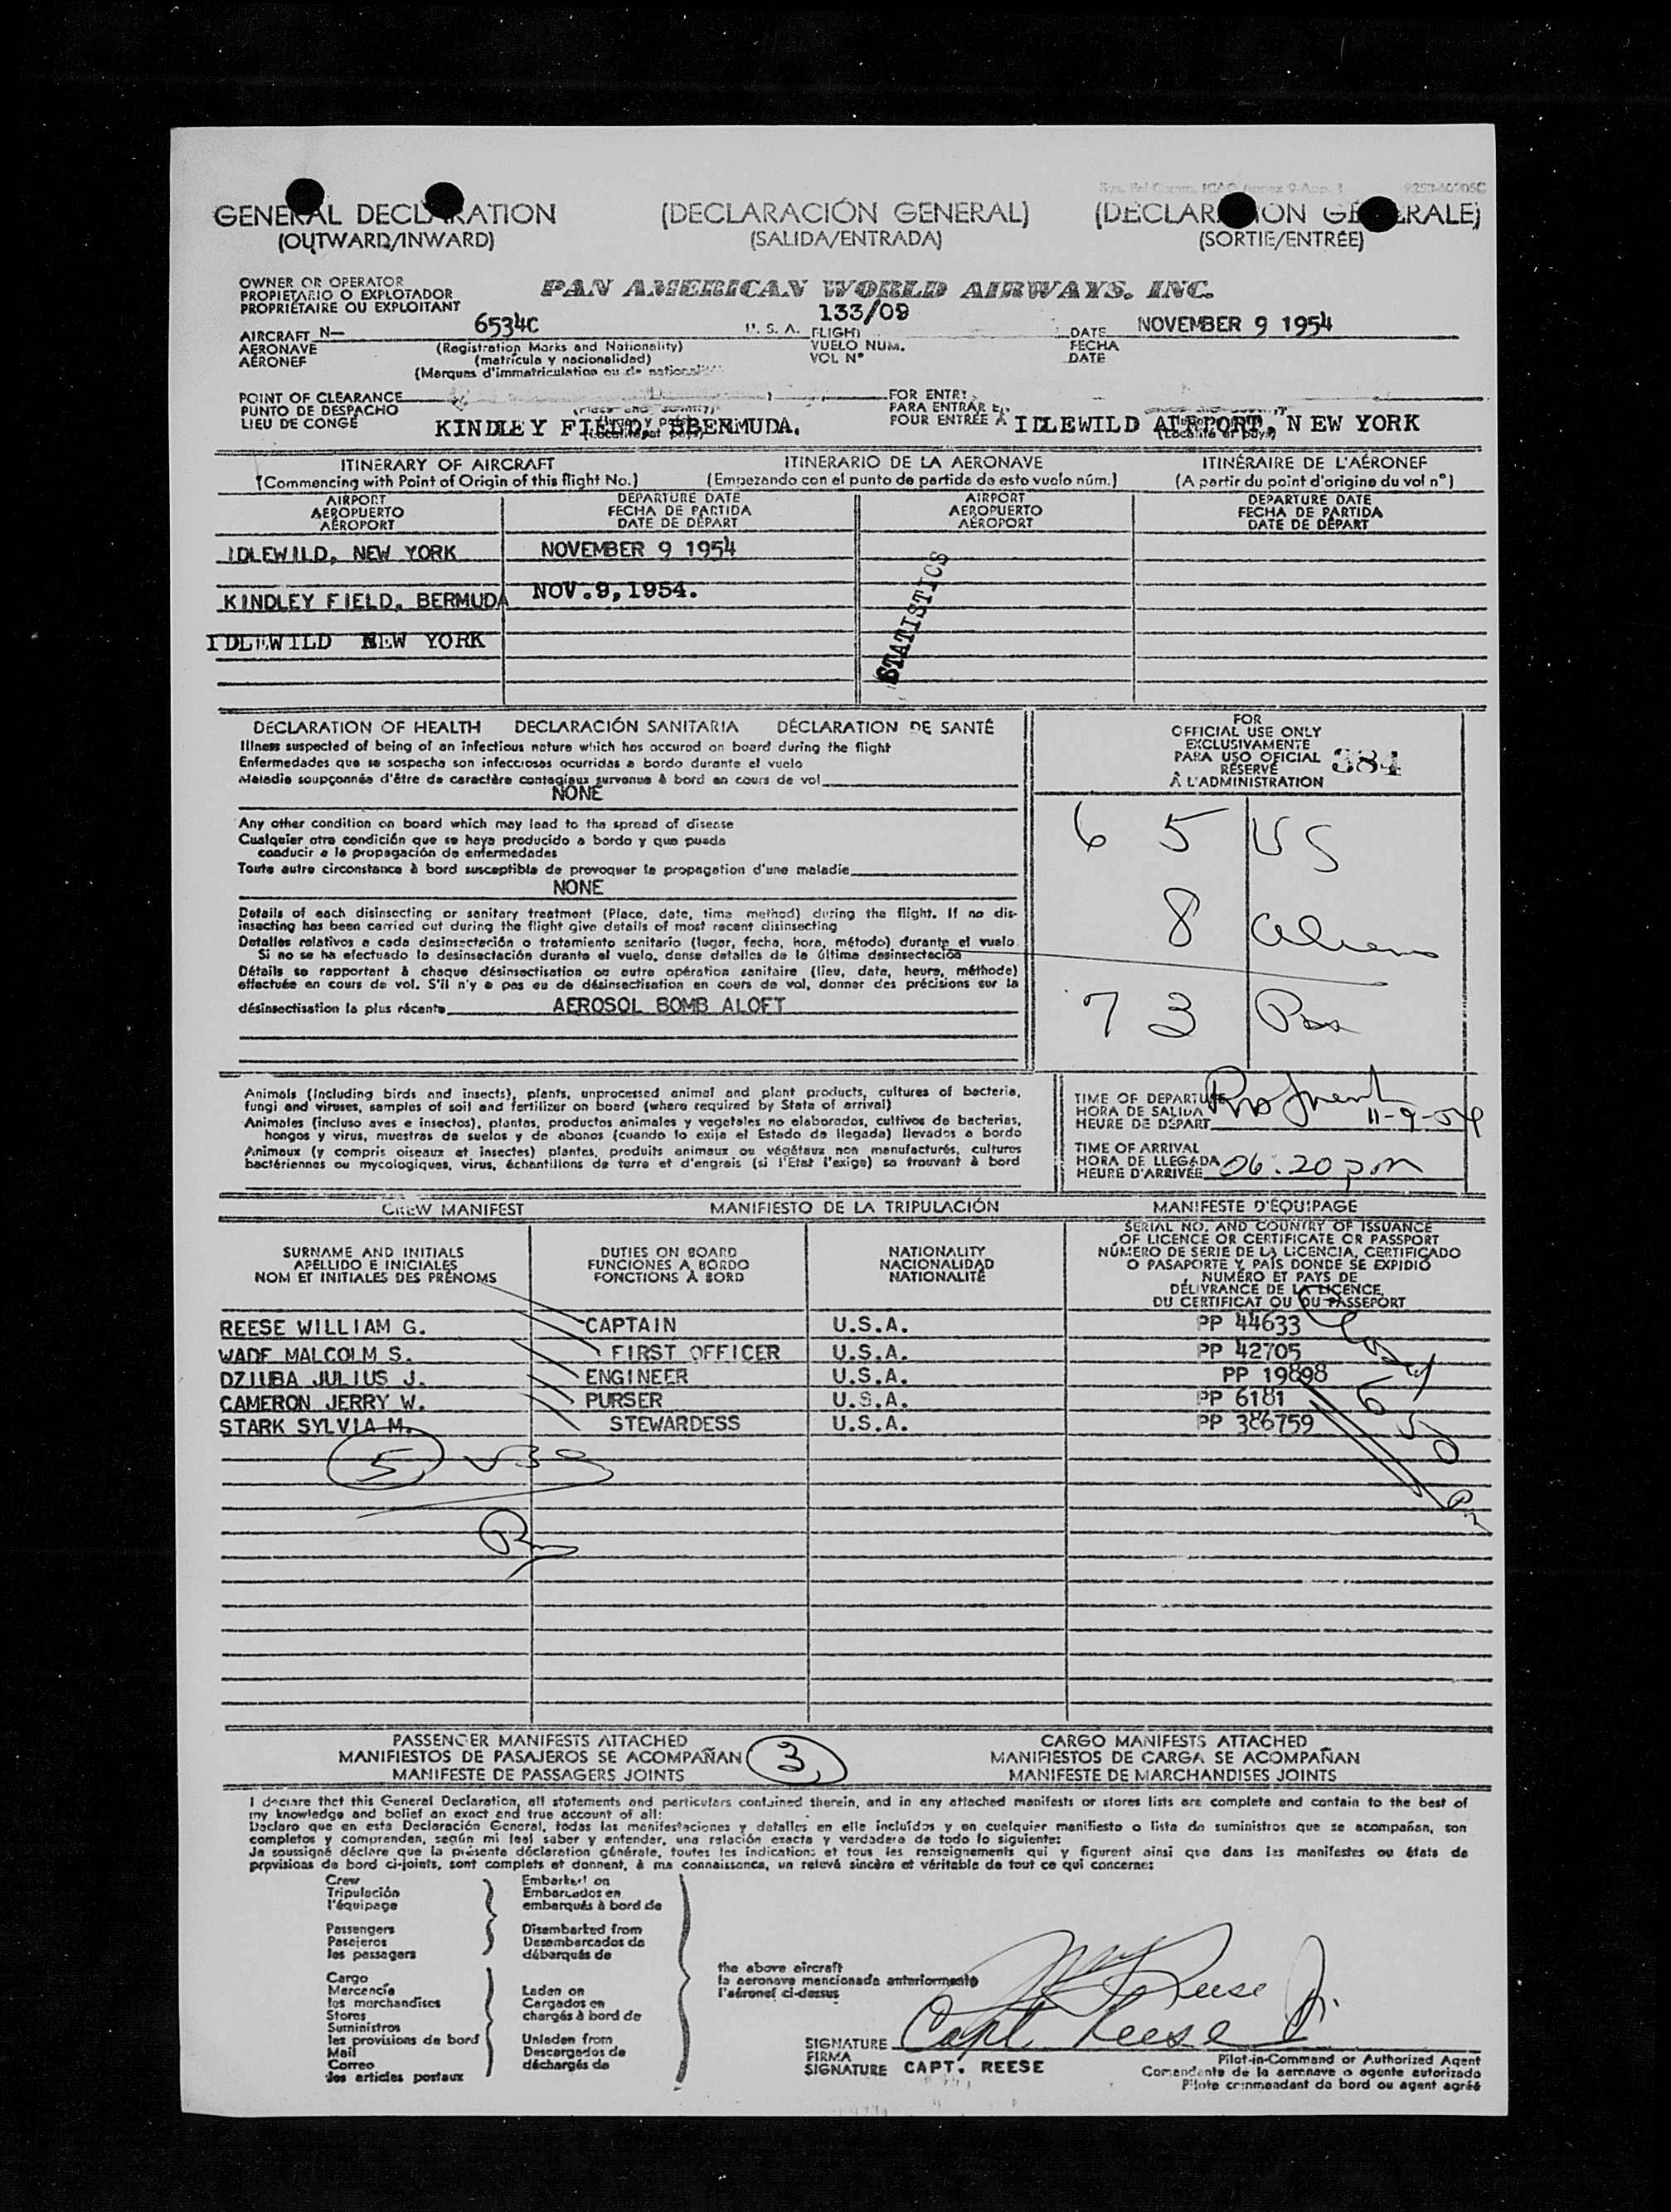 GENERAL DECLARATION (DECLARACIÓN GENERAL) (DÉCLARATION GÉNÉRALE)
(OUTWARD/INWARD) (SALIDA/ENTRADA) (SORTIE/ENTRÉE)
OWNER OR OPERATOR
PROPIETARIO O EXPLOTADOR
PROPRIÉTAIRE OU EXPLOITANT
PAN AMERICAN WORLD AIRWAYS, INC.
133/09
AIRCRAFT N— 6534C U. S. A. FLIGHT DATE NOVEMBER 9 1954
AERONAVE (Registration Marks and Nationality) VUELO NUM. FECHA
AÉRONEF (matrícula y nacionalidad) VOL Nº DATE
(Marques d'immatriculation ou de
POINT OF CLEARANCE FOR ENTRY
PUNTO DE DESPACHO PARA ENTRAR
LIEU DE CONGÉ KINDLEY FIELD, BBERMUDA. POUR ENTRÉE À IDLEWILD AIRPORT, NEW YORK
ITINERARY OF AIRCRAFT ITINERARIO DE LA AERONAVE ITINÉRAIRE DE L'AÉRONEF
(Commencing with Point of Origin of this flight No.) (Empezando con el punto de partida de esto vuelo núm.) (A partir du point d'origine du vol nº)
AIRPORT DEPARTURE DATE AIRPORT DEPARTURE DATE
AEROPUERTO FECHA DE PARTIDA AEROPUERTO FECHA DE PARTIDA
AÉROPORT DATE DE DÉPART AÉROPORT DATE DE DÉPART
IDLEWILD, NEW YORK NOVEMBER 9 1954
KINDLEY FIELD, BERMUDA NOV.9,1954.
IDLEWILD NEW YORK
STATISTICS
DECLARATION OF HEALTH DECLARACIÓN SANITARIA DÉCLARATION DE SANTÉ
Illness suspected of being of an infectious nature which has occured on board during the flight
Enfermedades que se sospecha son infecciosas ocurridas a bordo durante el vuelo
Maladie soupçonnée d'être de caractère contagieux survenue à bord en cours de vol
NONE
Any other condition on board which may lead to the spread of disease
Cualquier otra condición que se haya producido a bordo y que pueda
conducir a la propagación de enfermedades
Toute autre circonstance à bord susceptible de provoquer la propagation d'une maladie
NONE
Details of each disinsecting or sanitary treatment (Place, date, time method) during the flight. If no dis-
insecting has been carried out during the flight give details of most recent disinsecting
Detalles relativos a cada desinsectación o tratamiento sanitario (lugar, fecha, hora, método) durante el vuelo.
Si no se ha efectuado la desinsectación durante el vuelo, dense detalles de la última desinsectación
Détails se rapportant à chaque désinsectisation ou autre opération sanitaire (lieu, date, heure, méthode)
effectuée en cours de vol. S'il n'y a pas eu de désinsectisation en cours de vol, donner des précisions sur la
désinsectisation la plus récente AEROSOL BOMB ALOFT
FOR
OFFICIAL USE ONLY
EXCLUSIVAMENTE
PARA USO OFICIAL 384
RÉSERVÉ
À L'ADMINISTRATION
6 5 US
8 Aliens
7 3 Pax
Animals (including birds and insects), plants, unprocessed animal and plant products, cultures of bacteria,
fungi and viruses, samples of soil and fertilizer on board (where required by State of arrival)
Animales (incluso aves e insectos), plantas, productos animales y vegetales no elaborados, cultivos de bacterias,
hongos y virus, muestras de suelos y de abonos (cuando lo exija el Estado de llegada) llevados a bordo
Animaux (y compris oiseaux et insectes) plantes, produits animaux ou végétaux non manufacturés, cultures
bactériennes ou mycologiques, virus, échantillons de terre et d'engrais (si l'Etat l'exige) se trouvant à bord
TIME OF DEPARTURE
HORA DE SALIDA
HEURE DE DÉPART 11-9-54
TIME OF ARRIVAL
HORA DE LLEGADA
HEURE D'ARRIVÉE 06:20 pm
CREW MANIFEST MANIFIESTO DE LA TRIPULACIÓN MANIFESTE D'ÉQUIPAGE
SURNAME AND INITIALS DUTIES ON BOARD NATIONALITY
APELLIDO E INICIALES FUNCIONES A BORDO NACIONALIDAD
NOM ET INITIALES DES PRÉNOMS FONCTIONS À BORD NATIONALITÉ
SERIAL NO. AND COUNTRY OF ISSUANCE
OF LICENCE OR CERTIFICATE OR PASSPORT
NÚMERO DE SERIE DE LA LICENCIA, CERTIFICADO
O PASAPORTE Y PAÍS DONDE SE EXPIDIÓ
NUMÉRO ET PAYS DE
DÉLIVRANCE DE LA LICENCE,
DU CERTIFICAT OU DU PASSEPORT
REESE WILLIAM G. CAPTAIN U.S.A. PP 44633
WADE MALCOLM S. FIRST OFFICER U.S.A. PP 42705
DZIUBA JULIUS J. ENGINEER U.S.A. PP 19898
CAMERON JERRY W. PURSER U.S.A. PP 6181
STARK SYLVIA M. STEWARDESS U.S.A. PP 386759
5
PASSENGER MANIFESTS ATTACHED CARGO MANIFESTS ATTACHED
MANIFIESTOS DE PASAJEROS SE ACOMPAÑAN 3 MANIFIESTOS DE CARGA SE ACOMPAÑAN
MANIFESTE DE PASSAGERS JOINTS MANIFESTE DE MARCHANDISES JOINTS
I declare that this General Declaration, all statements and particulars contained therein, and in any attached manifests or stores lists are complete and contain to the best of
my knowledge and belief an exact and true account of all:
Declaro que en esta Declaración General, todas las manifestaciones y detalles en elle incluídos y en cualquier manifiesto o lista de suministros que se acompañan, son
completos y comprenden, según mi leal saber y entender, una relación exacta y verdadera de todo lo siguiente:
Je soussigné déclare que la présente déclaration générale, toutes les indications et tous les renseignements qui y figurent ainsi que dans les manifestes ou états de
provisions de bord ci-joints, sont complets et donnent, à ma connaissance, un relevé sincère et véritable de tout ce qui concerne:
Crew Embarked on
Tripulación Embarcados en
l'équipage embarqués à bord de
Passengers Disembarked from
Pasajeros Desembarcados de
les passagers débarqués de
Cargo
Mercencía
les marchandises
Stores
Suministros
les provisions de bord
Mail
Correo
les articles postaux
Laden on
Cargados en
chargés à bord de
Unladen from
Descargados de
déchargés de
the above aircraft
la aeronave mencionada anteriormente
l'aéronef ci-dessus
Reese Jr.
SIGNATURE Capt. Reese Jr.
FIRMA
SIGNATURE CAPT. REESE
Pilot-in-Command or Authorized Agent
Comandante de la aeronave o agente autorizado
Pilote commandant de bord ou agent agréé